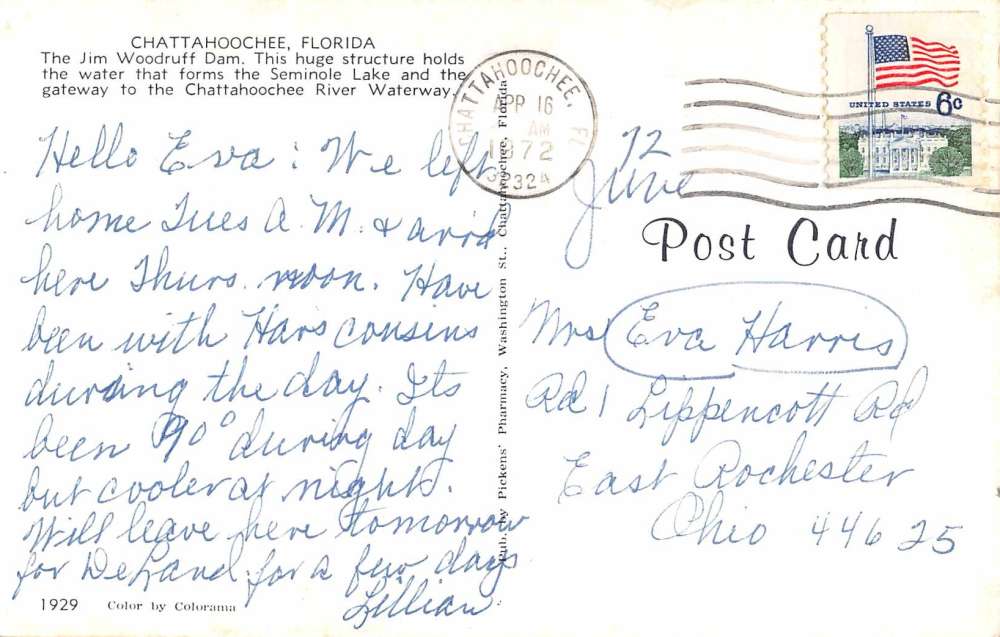 CHATTAHOOCHEE, FLORIDA
The Jim Woodruff Dam. This huge structure holds
the water that forms the Seminole Lake and the
gateway to the Chattahoochee River Waterway.
Hello Eva: We left
home Tues A.M. & arivd
here Thurs. noon. Have
been with Har's cousins
during the day. Its
been 90° during day
but cooler at nights.
Will leave here tomorrow
for DeLand for a few days
Lillian
1929 Color by Colorama
Pub. by Pickens' Pharmacy, Washington St., Chattahoochee, Florida
CHATTAHOOCHEE, FL
APR 16
AM
1972
32324
72
June
UNITED STATES 6c
Post Card
Mrs Eva Harris
Rd 1 Lippencott Rd
East Rochester
Ohio 44625